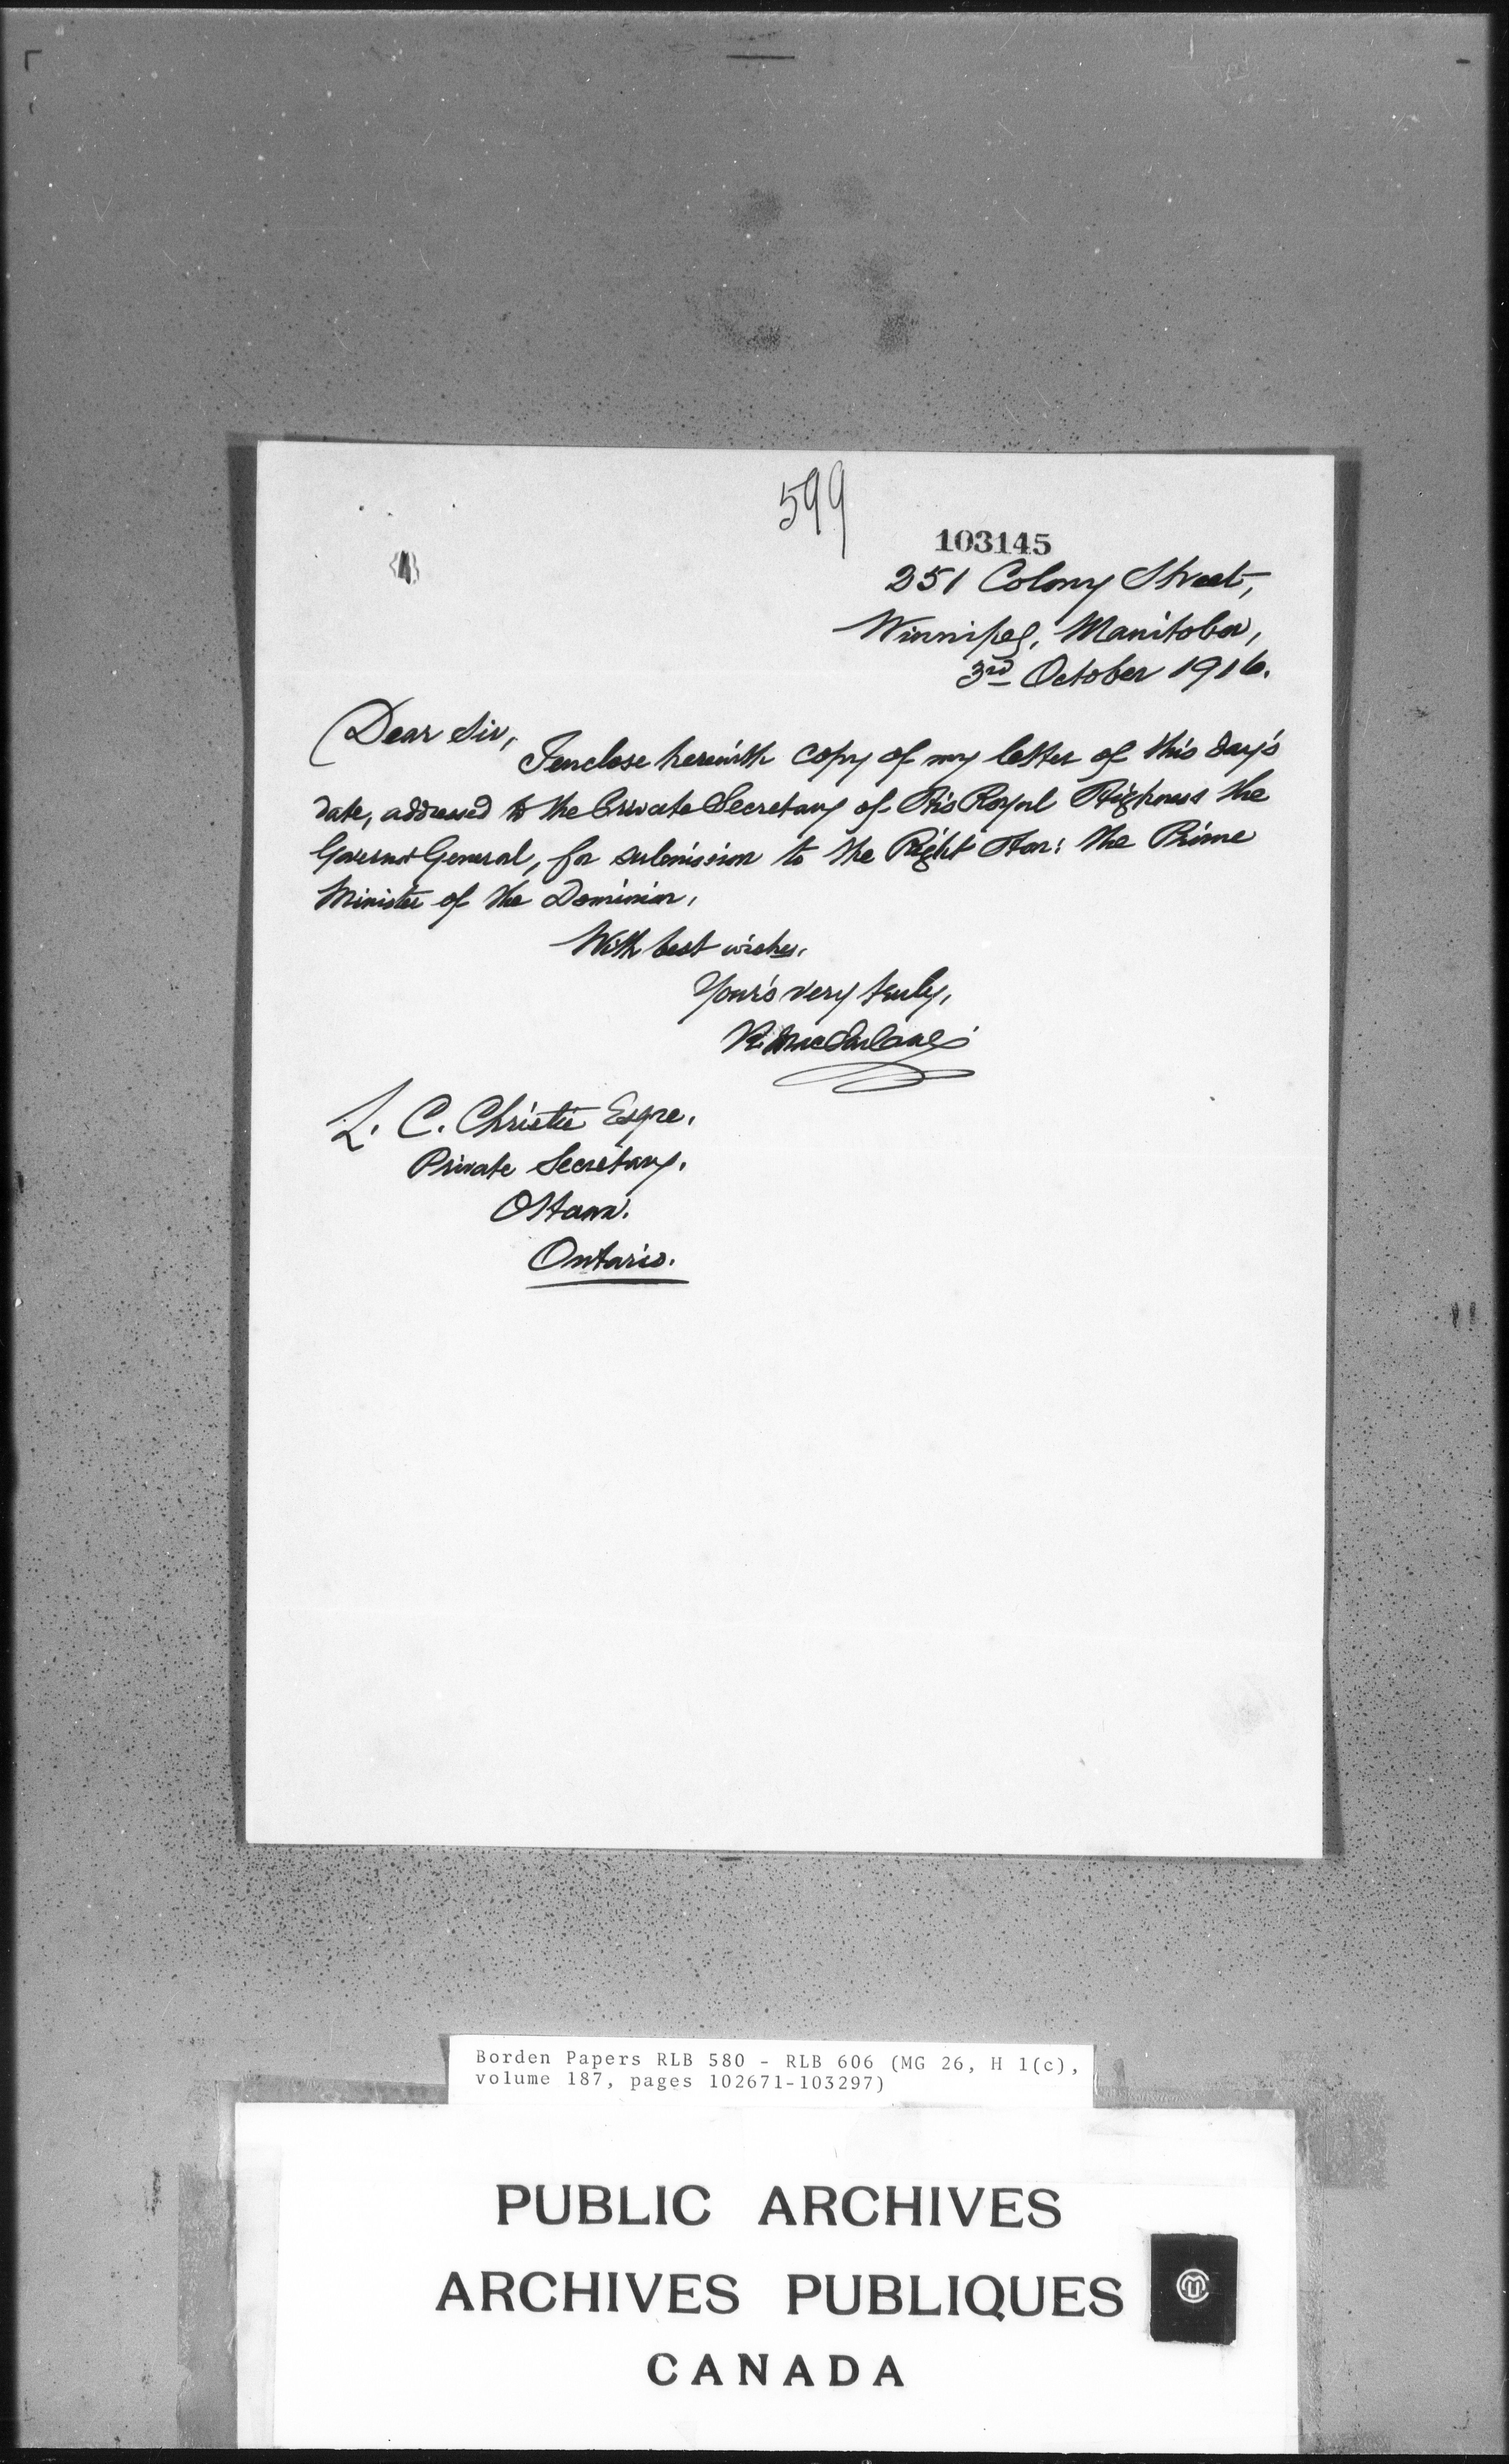 599
103145
251 Colony Street,
Winnipeg, Manitoba,
3rd October 1916.
Dear Sir,
I enclose herewith copy of my letter of this day's
date, addressed to the Private Secretary of His Royal Highness the
Governor General, for submission to the Right Hon: the Prime
Minister of the Dominion,
With best wishes,
Your's very truly,
R. MacFarlane
L. C. Christie Esqre.
Private Secretary.
Ottawa.
Ontario.
Borden Papers RLB 580 - RLB 606 (MG 26, H 1(c),
volume 187, pages 102671-103297)
PUBLIC ARCHIVES
ARCHIVES PUBLIQUES
CANADA